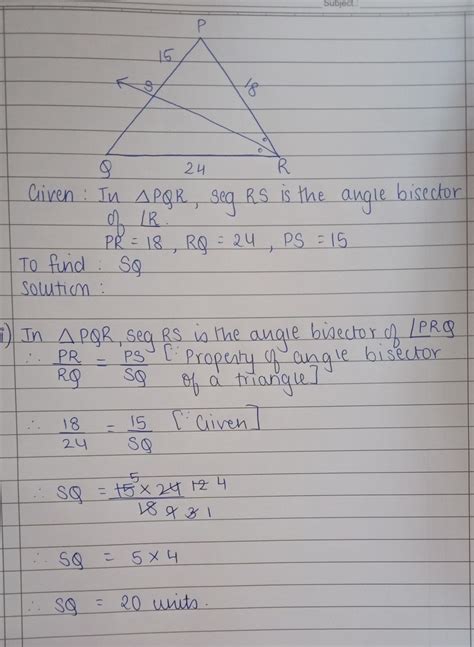 Subject
P
15
S
18
Q
24
R
Given : In △PQR, seg RS is the angle bisector
of ∠R.
PR = 18 , RQ = 24 , PS = 15
To find : SQ
Solution :
i) In △PQR, seg RS is the angle bisector of ∠PRQ
∴ PR/RQ = PS/SQ [∵ Property of angle bisector
of a triangle]
∴ 18/24 = 15/SQ [∵ Given]
∴ SQ = 15 5 × 24 12 4 / 18 9 3 1
∴ SQ = 5 × 4
∴ SQ = 20 units.